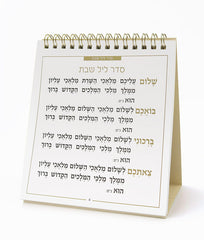 סדר ליל שבת
שָׁלוֹם עֲלֵיכֶם מַלְאֲכֵי הַשָּׁרֵת מַלְאֲכֵי עֶלְיוֹן
מִמֶּלֶךְ מַלְכֵי הַמְּלָכִים הַקָּדוֹשׁ בָּרוּךְ
הוּא ג״פ
בּוֹאֲכֶם לְשָׁלוֹם מַלְאֲכֵי הַשָּׁלוֹם מַלְאֲכֵי עֶלְיוֹן
מִמֶּלֶךְ מַלְכֵי הַמְּלָכִים הַקָּדוֹשׁ בָּרוּךְ
הוּא ג״פ
בָּרְכוּנִי לְשָׁלוֹם מַלְאֲכֵי הַשָּׁלוֹם מַלְאֲכֵי עֶלְיוֹן
מִמֶּלֶךְ מַלְכֵי הַמְּלָכִים הַקָּדוֹשׁ בָּרוּךְ
הוּא ג״פ
צֵאתְכֶם לְשָׁלוֹם מַלְאֲכֵי הַשָּׁלוֹם מַלְאֲכֵי עֶלְיוֹן
מִמֶּלֶךְ מַלְכֵי הַמְּלָכִים הַקָּדוֹשׁ בָּרוּךְ
הוּא ג״פ